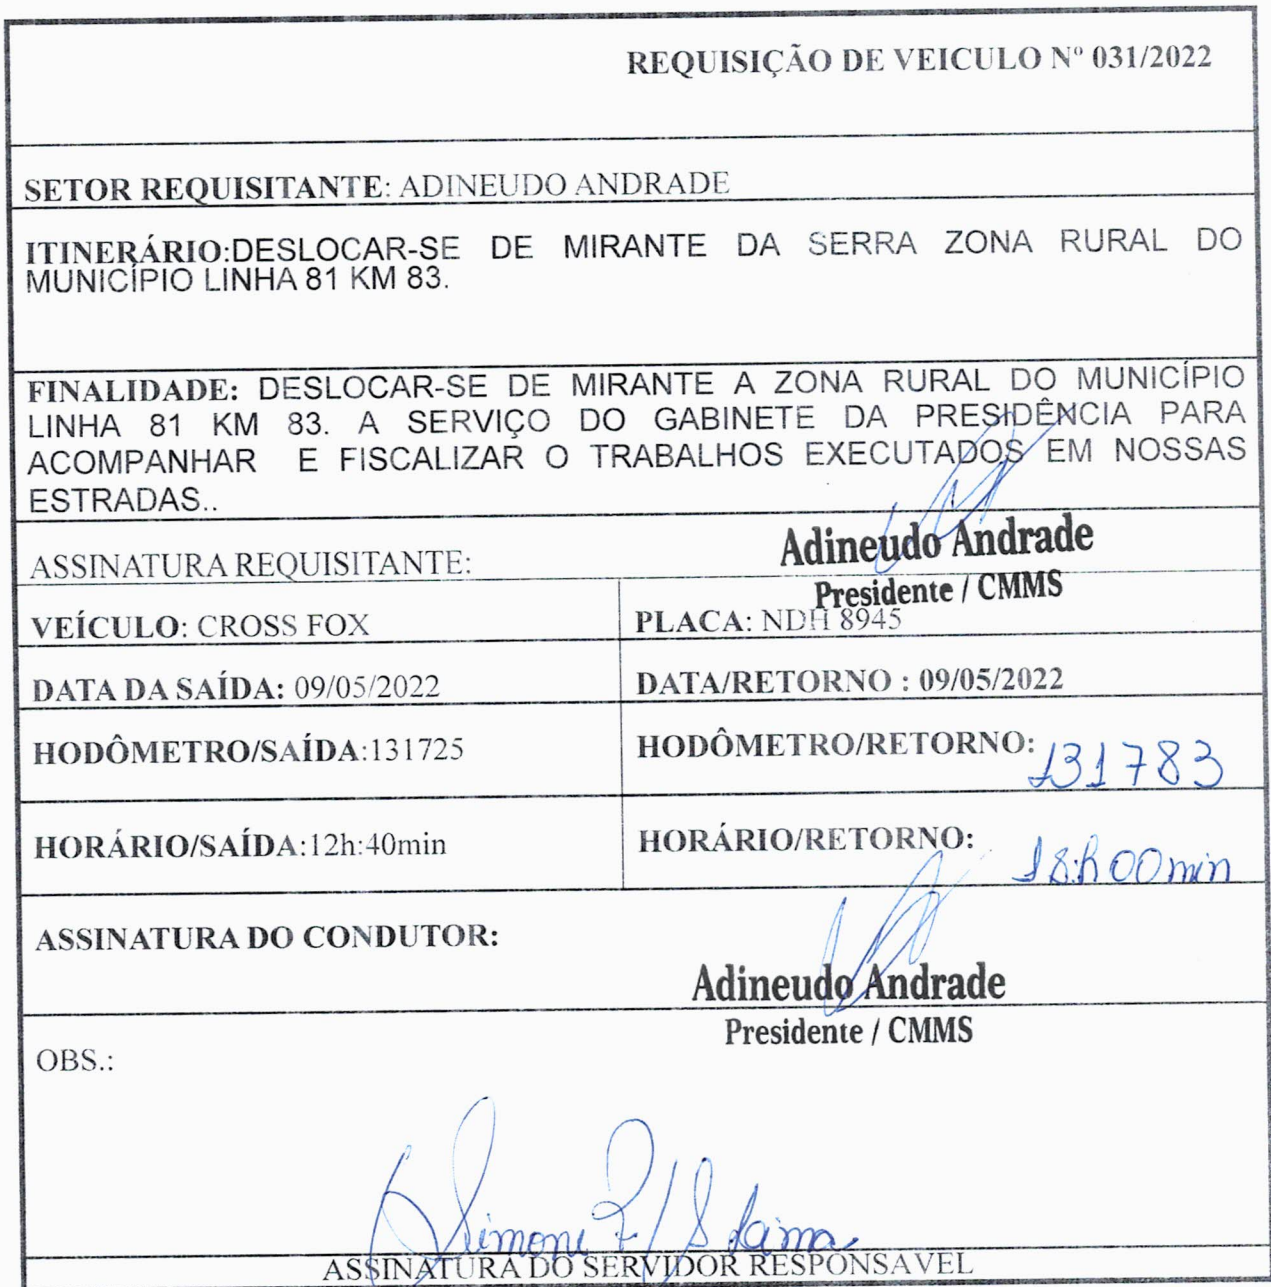 REQUISIÇÃO DE VEICULO Nº 031/2022
SETOR REQUISITANTE: ADINEUDO ANDRADE
ITINERÁRIO:DESLOCAR-SE DE MIRANTE DA SERRA ZONA RURAL DO
MUNICÍPIO LINHA 81 KM 83.
FINALIDADE: DESLOCAR-SE DE MIRANTE A ZONA RURAL DO MUNICÍPIO
LINHA 81 KM 83. A SERVIÇO DO GABINETE DA PRESIDÊNCIA PARA
ACOMPANHAR E FISCALIZAR O TRABALHOS EXECUTADOS EM NOSSAS
ESTRADAS..
ASSINATURA REQUISITANTE: Adineudo Andrade
Presidente / CMMS
VEÍCULO: CROSS FOX PLACA: NDH 8945
DATA DA SAÍDA: 09/05/2022 DATA/RETORNO : 09/05/2022
HODÔMETRO/SAÍDA:131725 HODÔMETRO/RETORNO: 131783
HORÁRIO/SAÍDA:12h:40min HORÁRIO/RETORNO: 18:h00min
ASSINATURA DO CONDUTOR:
Adineudo Andrade
Presidente / CMMS
OBS.:
Simoni
ASSINATURA DO SERVIDOR RESPONSAVEL